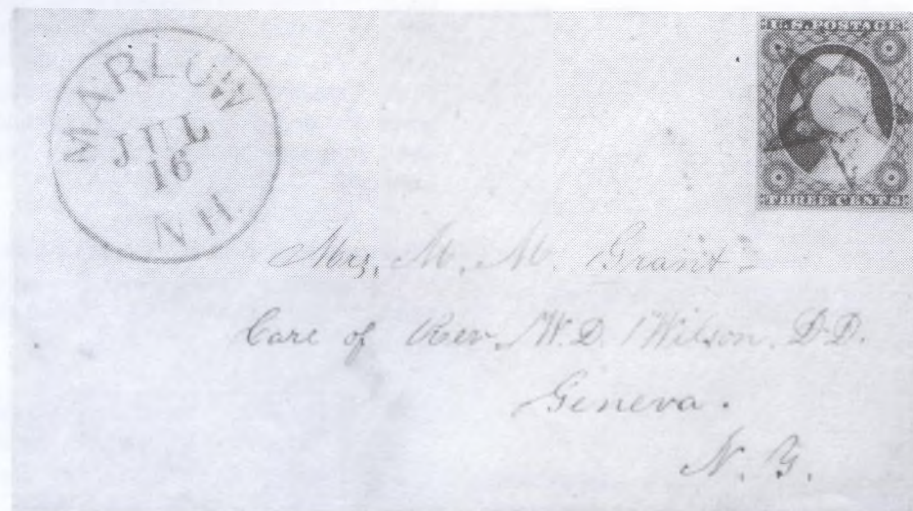 MARLOW
JUL
16
N.H.
U.S. POSTAGE
THREE CENTS
Mrs, M. M. Grant
Care of Rev. W. D. Wilson, D.D.
Geneva.
N. Y.